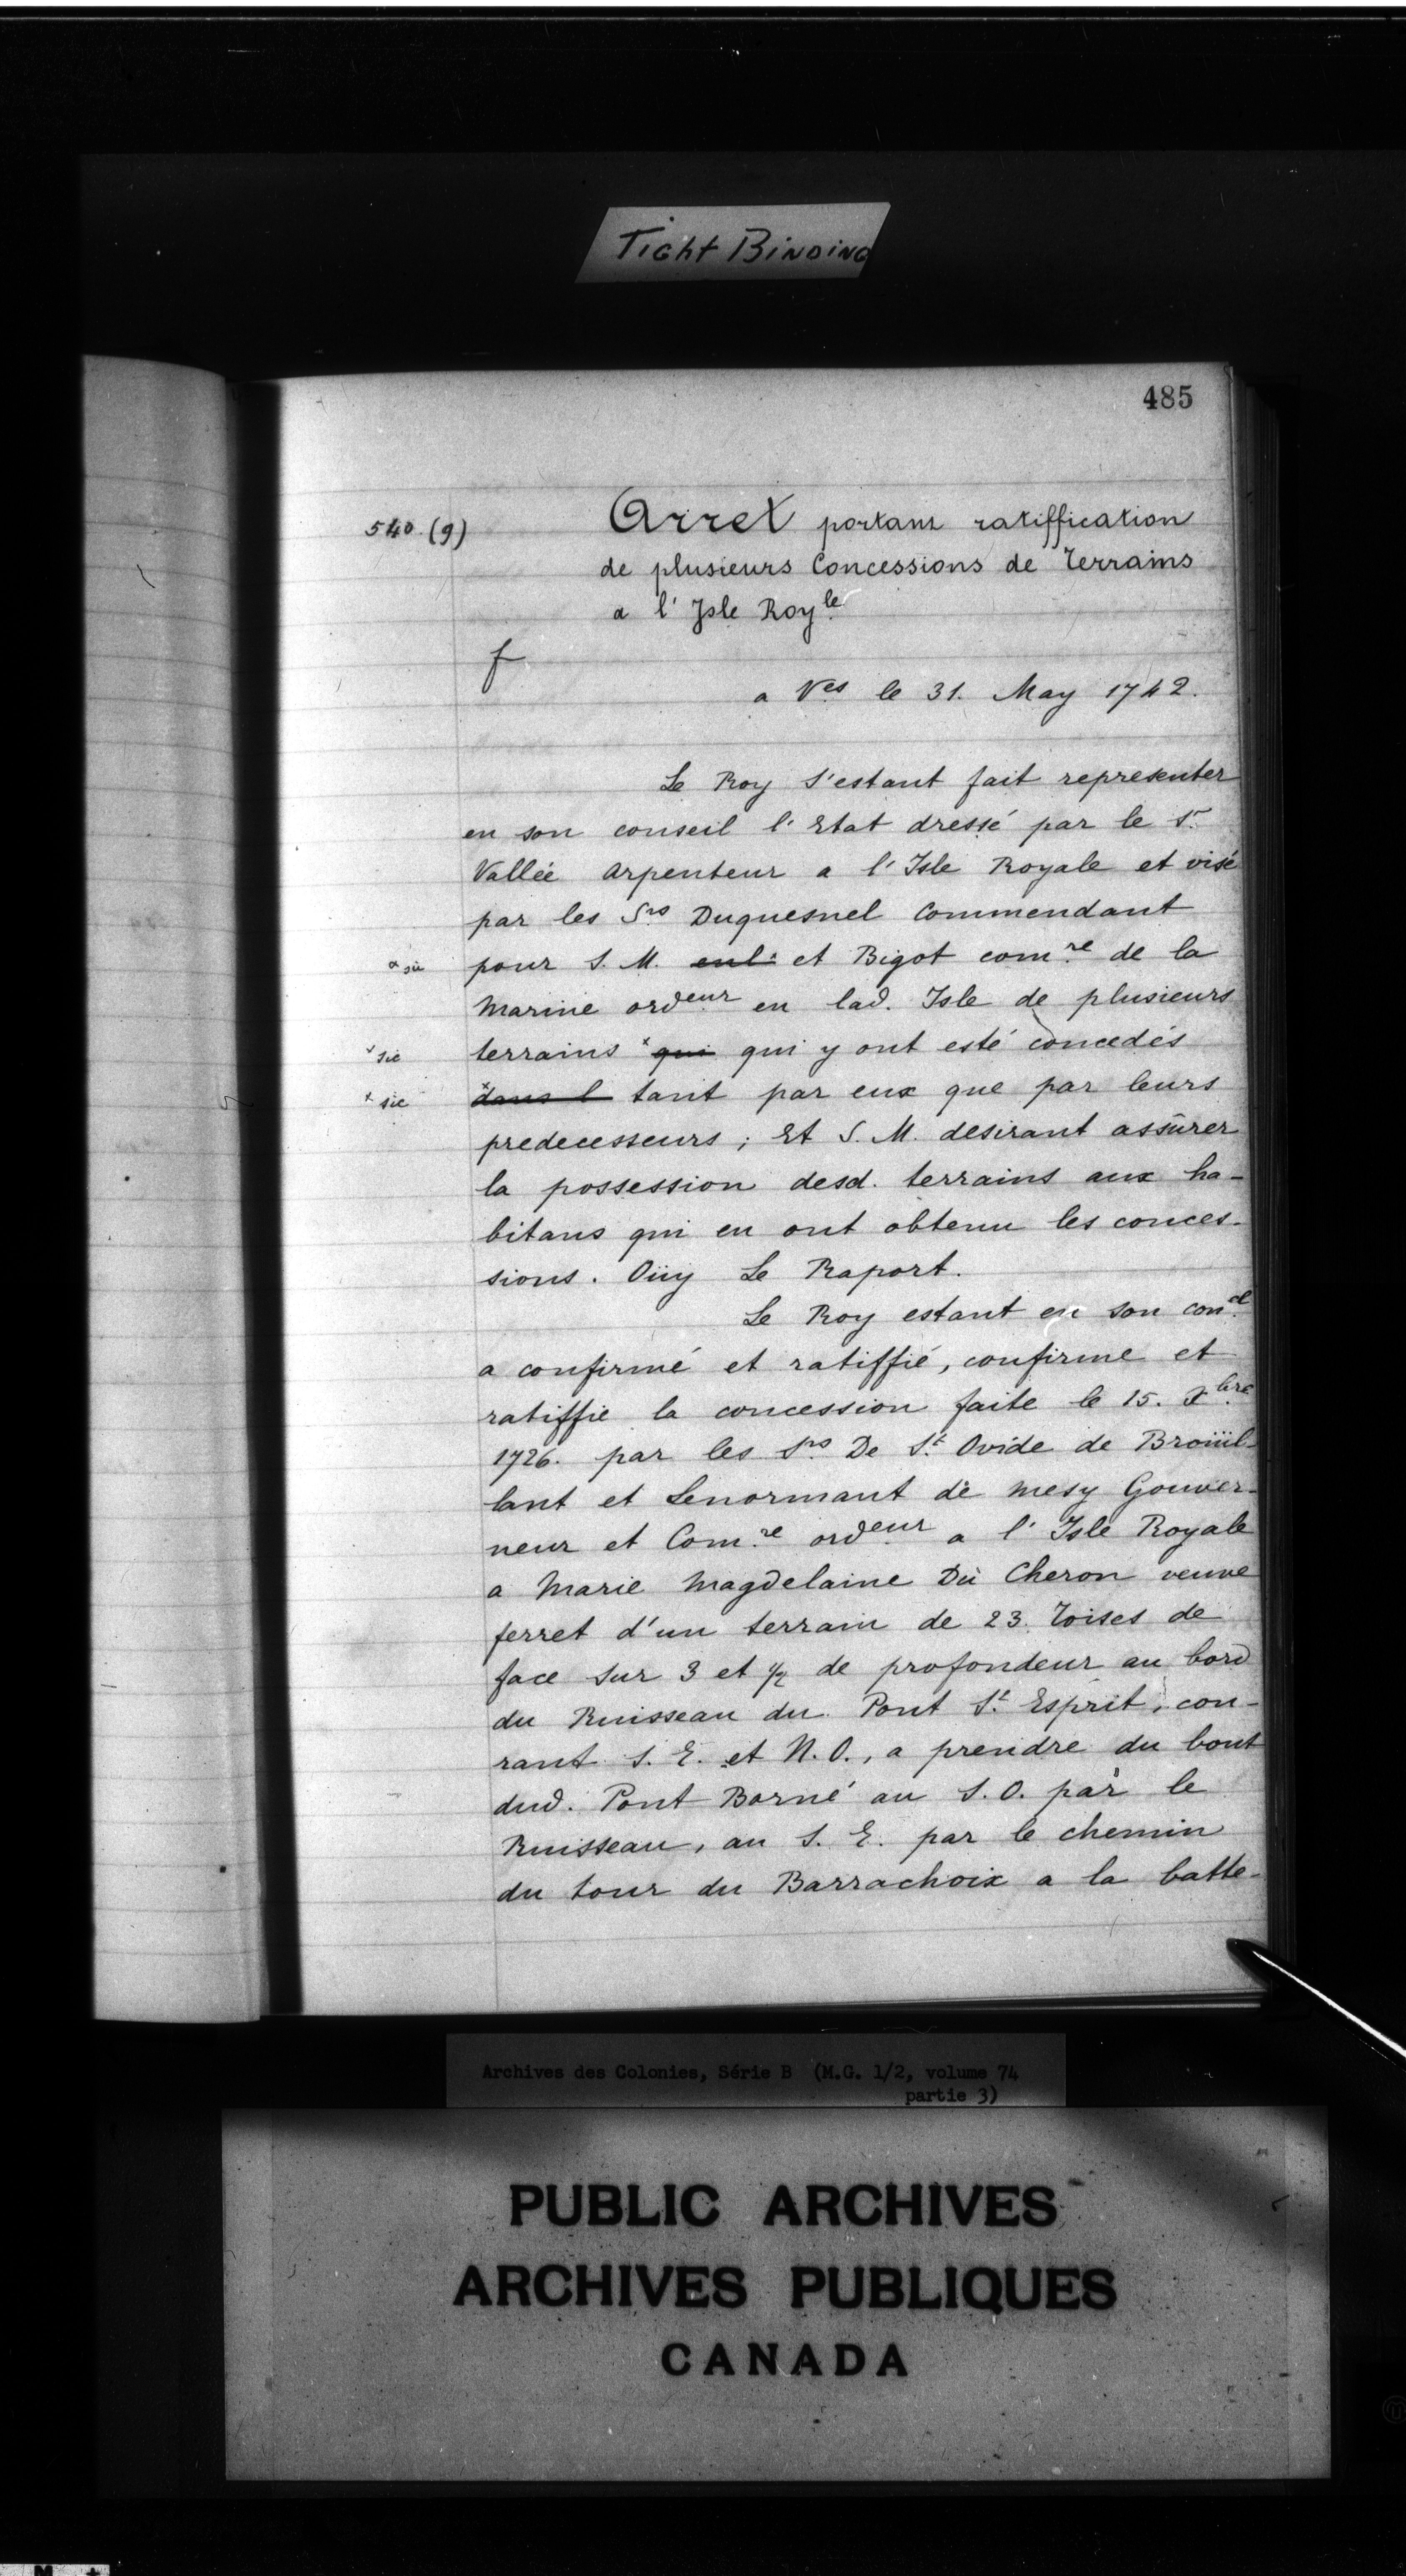 Tight Binding
485
540. (9)
Arret portant ratiffication
de plusieurs Concessions de Terrains
a l'Isle Royle
f
a Ves le 31. May 1742.
Le Roy s'estant fait representer
en son conseil l'Etat dressé par le Sr
Vallée Arpenteur a l'Isle Royale et visé
par les Srs Duquesnel Commendant
x sic
pour S. M. enl: et Bigot comre de la
Marine ordeur en lad. Isle de plusieurs
x sic
terrains x qui qui y ont esté concedés
x sic
x dans l tant par eux que par leurs
predecesseurs; Et S. M. desirant assûrer
la possession desd. terrains aux ha-
bitans qui en ont obtenu les conces-
sions. Oüy Le Raport.
Le Roy estant en son conel
a confirmé et ratiffié, confirme et
ratiffie la concession faite le 15. xbre
1726. par les Srs De St Ovide de Broüil-
lant et Lenormant de mesy Gouver-
neur et Comre ordeur a l'Isle Royale
a Marie Magdelaine Du Cheron veuve
ferret d'un terrain de 23. Toises de
face sur 3 et 1/2 de profondeur au bord
du Ruisseau du Pont St Esprit, cou-
rant S. E. et N. O., a prendre du bout
dud. Pont Borné au S. O. par le
Ruisseau, au S. E. par le chemin
du tour du Barrachoix a la batte-
Archives des Colonies, Série B (M.G. 1/2, volume 74
partie 3)
PUBLIC ARCHIVES
ARCHIVES PUBLIQUES
CANADA